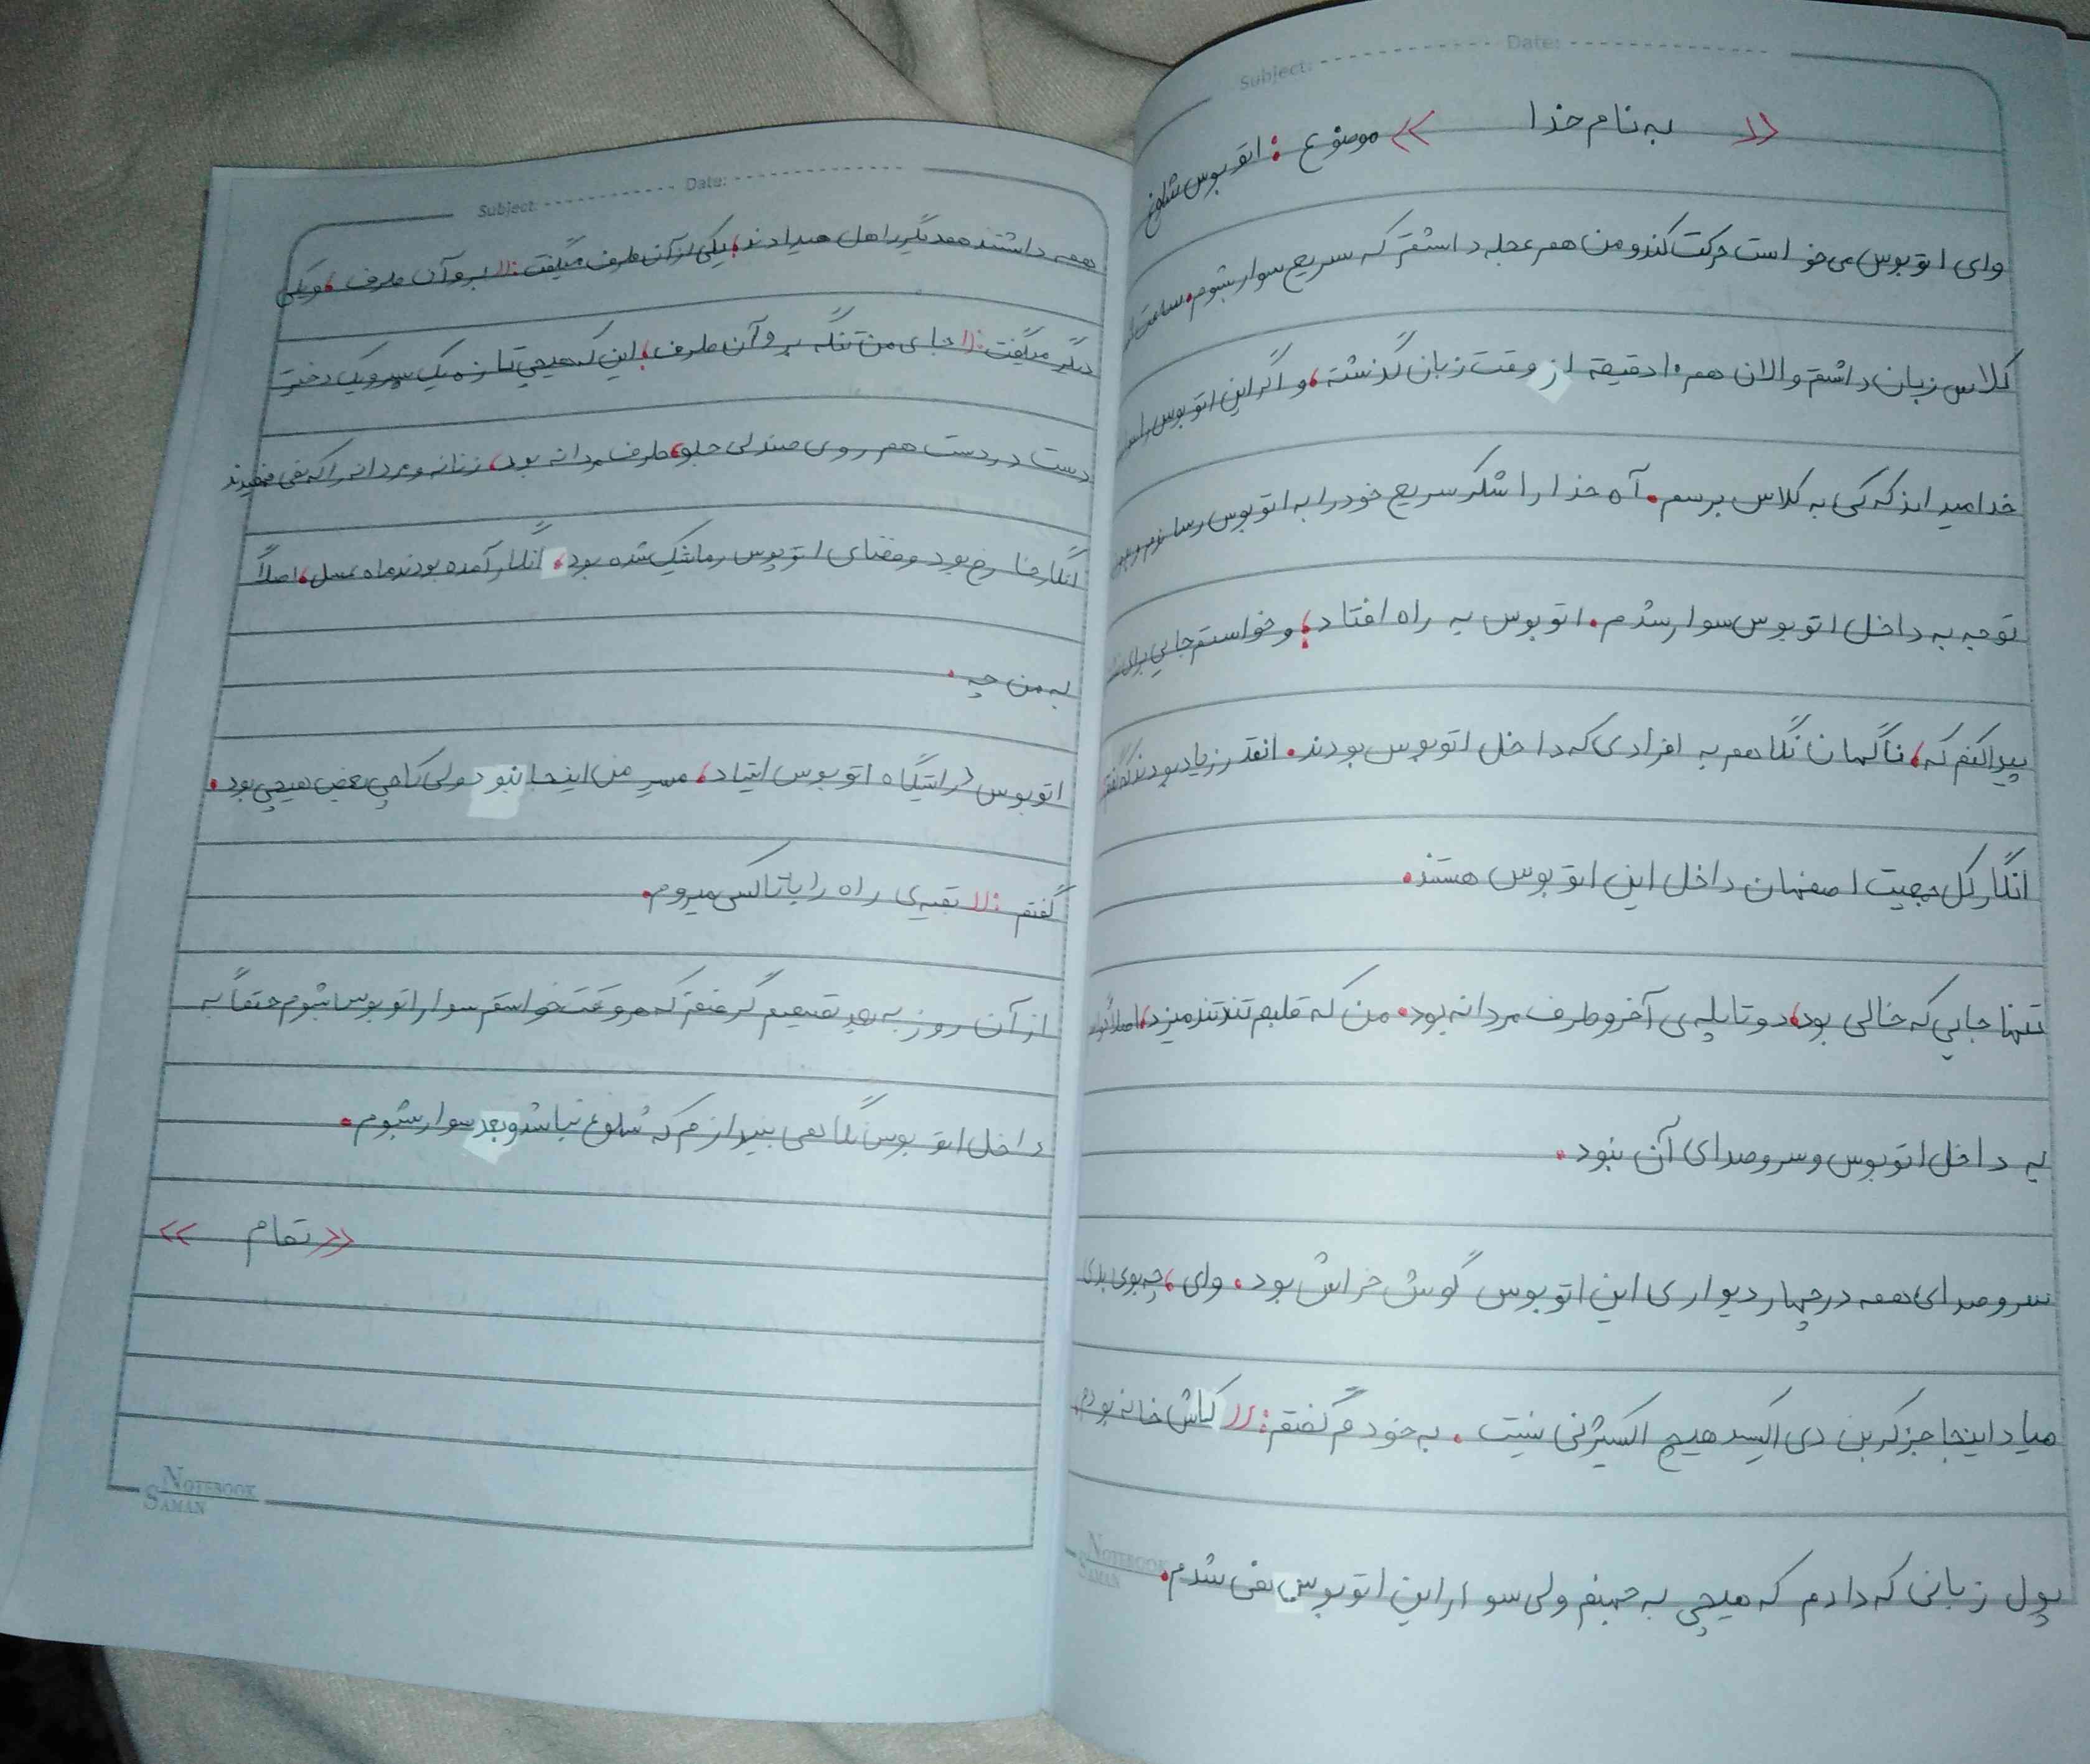 Subject: Date:
« به نام خدا » موضوع : اتوبوس شلوغ
وای اتوبوس می خواست حرکت کند و من هم عجله داشتم که سریع سوار بشوم. ساعت
کلاس زبان داشتم و الان هم ۱۰ دقیقه از وقت زبان گذشته، و اگر این اتوبوس
خدا میداند که کی به کلاس برسم. آه خدا را شکر سریع خود را به اتوبوس رساندم و
توجه به داخل اتوبوس سوار شدم. اتوبوس به راه افتاد؛ و خواستم جایی برای
پیدا کنم که، ناگهان نگاهم به افرادی که داخل اتوبوس بودند. انقدر زیاد بودند که
انگار کل جمعیت اصفهان داخل این اتوبوس هستند.
تنها جایی که خالی بود، دو تا پله ی آخر و طرف مردانه بود. من که قلبم تند تند میزد، اصلاً
به داخل اتوبوس و سر و صدای آن نبود.
سر و صدای همه در چهار دیواری این اتوبوس گوش خراش بود. وای، چه بوی بدی
میاد اینجا جز کربن دی اکسید هیچ اکسیژنی نیست. به خودم گفتم: (( کاش خانه بودم
پول زبانی که دادم که هیچی به جهنم ولی سوار این اتوبوس نمی شدم.
NOTEBOOK
SAMAN
Subject: Date:
همه داشتند همدیگر را هل میدادند، یکی از آن طرف میگفت: (( برو آن طرف، و یکی
دیگر میگفت: (( جای من تنگه برو آن طرف، این که هیچی تازه یک پسر و یک دختر
دست در دست هم روی صندلی جلو، طرف مردانه بود، زنانه و مردانه را که نمی فهمیدند
انگار خا رج بود و فضای اتوبوس رمانتیک شده بود. انگار آمده بودند ماه عسل، اصلاً
به من چه.
اتوبوس در ایستگاه اتوبوس ایستاد، مسیر من اینجا نبود ولی کاچی بعض هیچی بود.
گفتم: (( بقیه ی راه را با تاکسی میروم.
از آن روز به بعد تصمیم گرفتم که هر وقت خواستم سوار اتوبوس بشوم حتماً به
داخل اتوبوس نگاهی بیندازم که شلوغ نباشد و بعد سوار بشوم.
« تمام »
NOTEBOOK
SAMAN